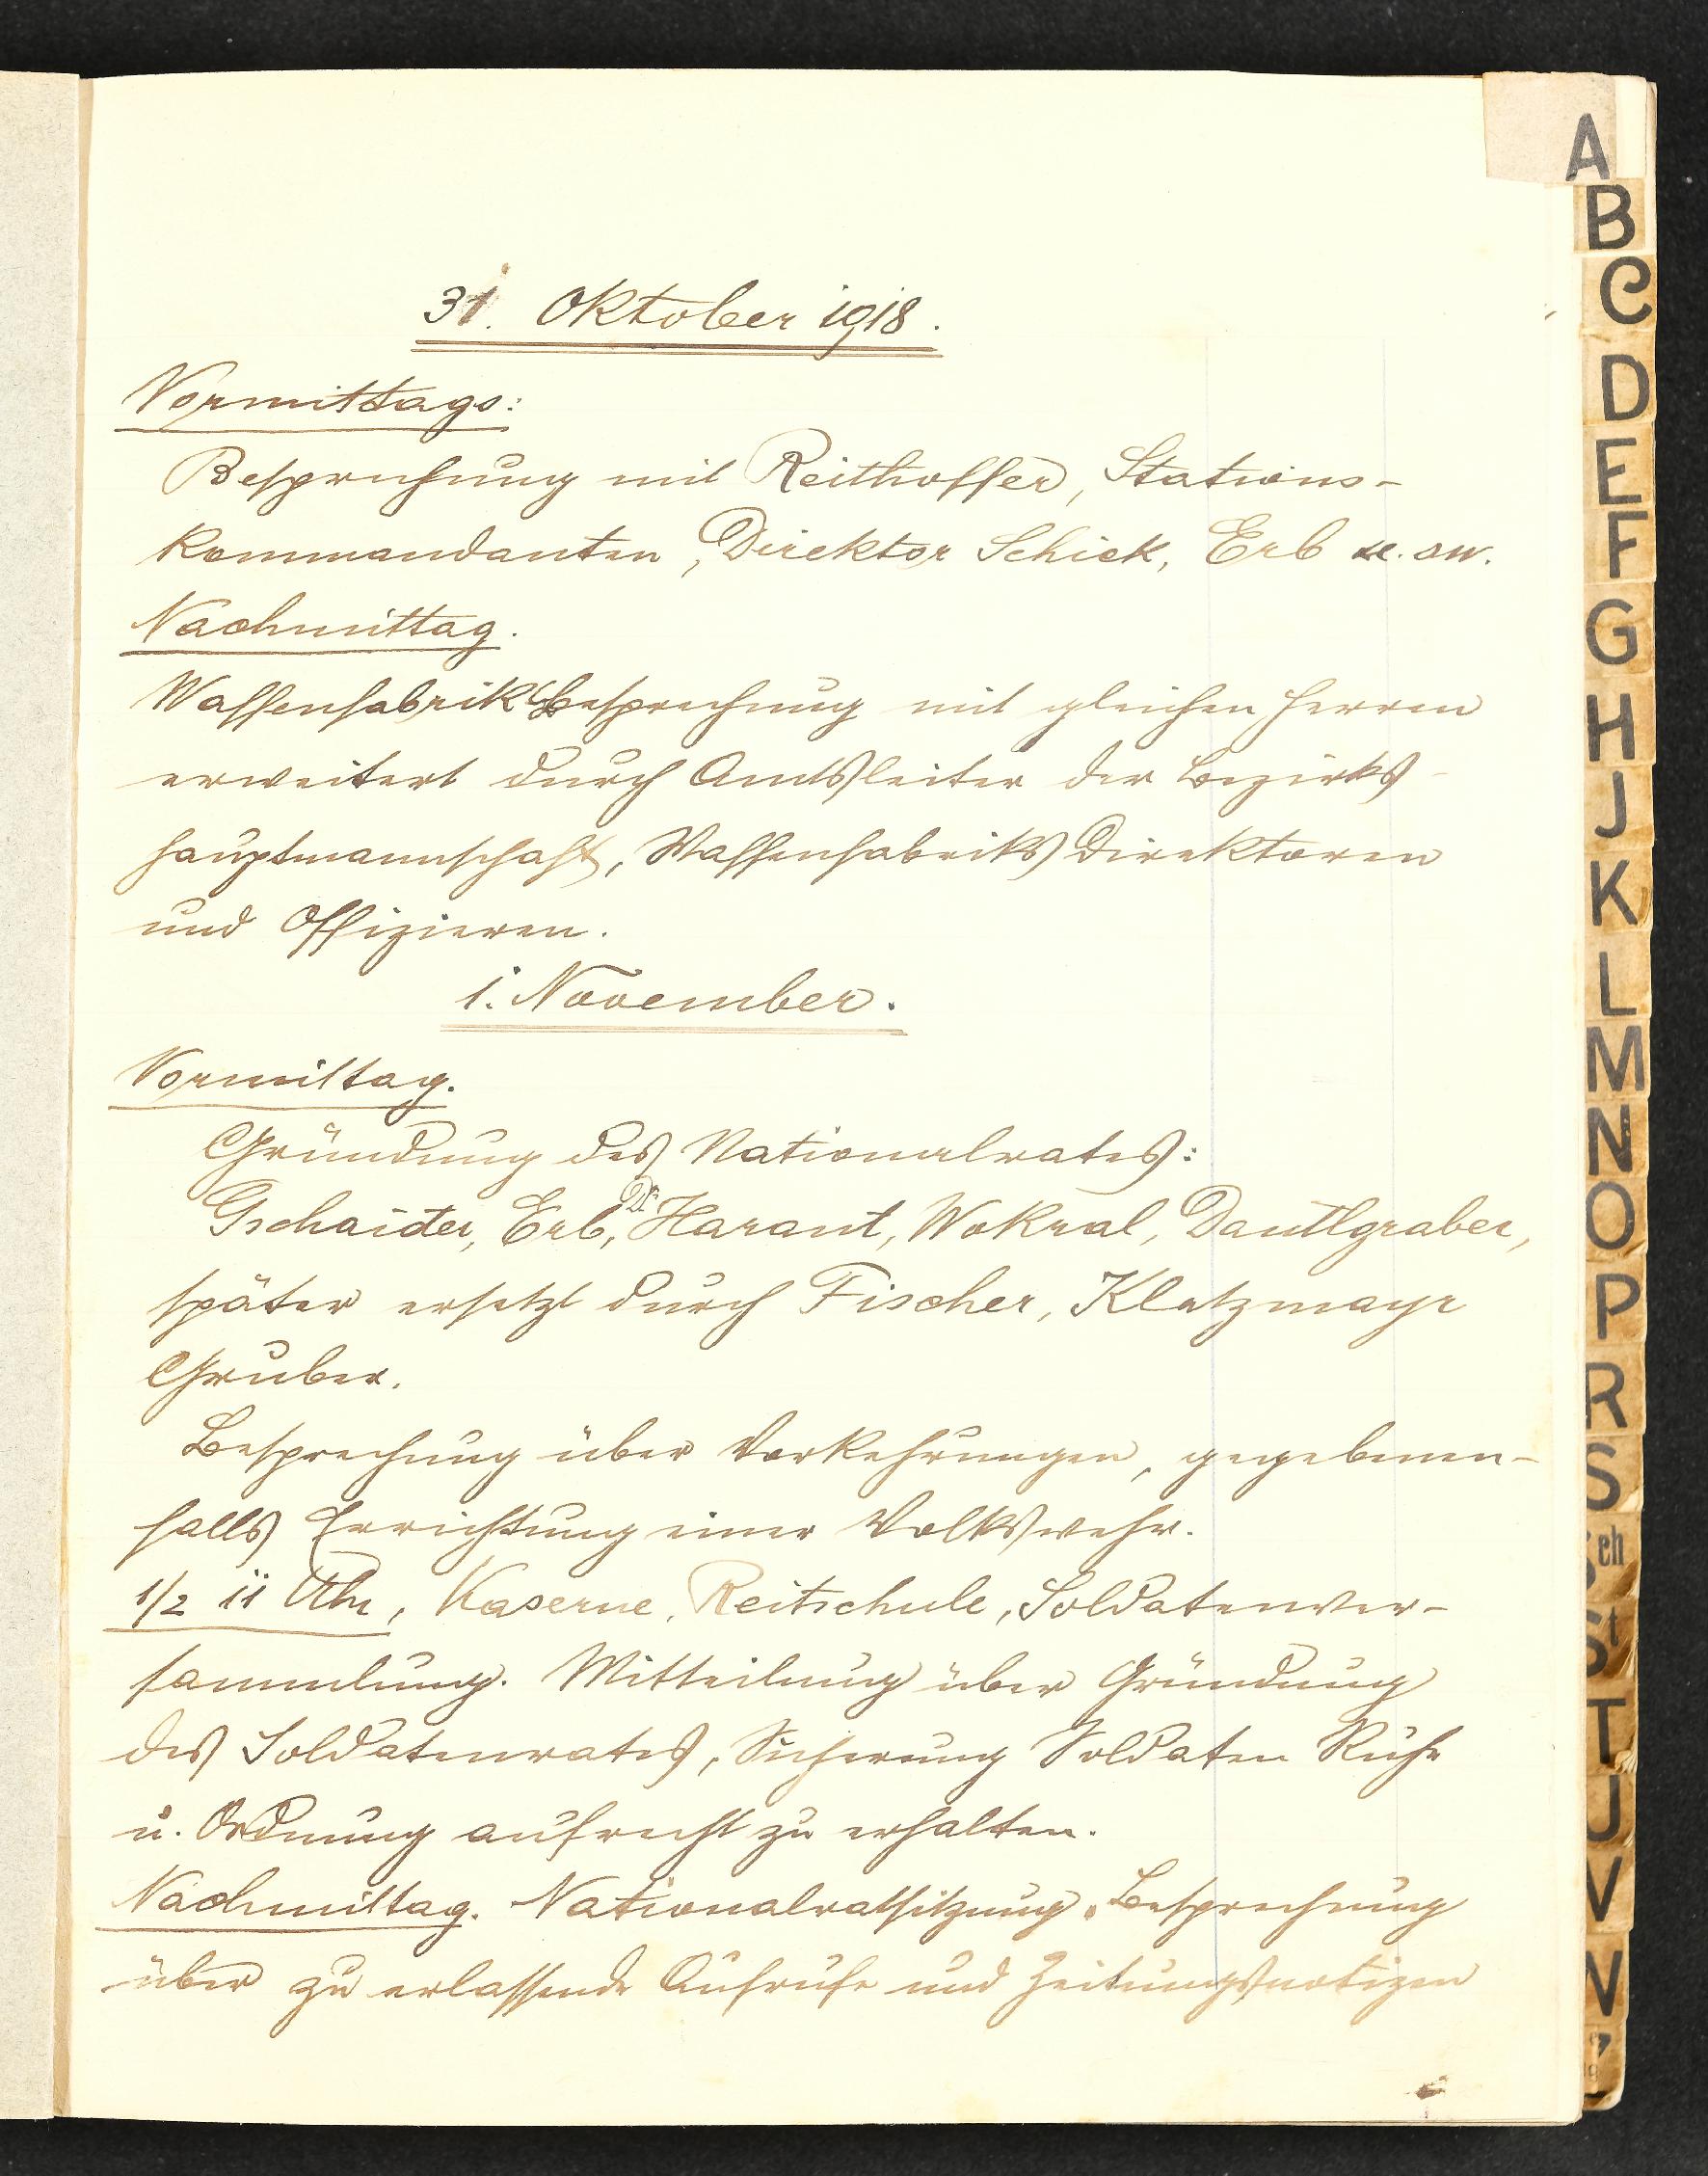 31. Oktober 1918.
Vormittags:
Besprechung mit Reithoffer, Stations-
kommandanten, Direktor Schick, Erb u. sw.
Nachmittag.
Waffenfabrik Besprechung mit gleichen Herren
erweitert durch Amtsleiter der Bezirks-
hauptmannschaft, Waffenfabriks Direktoren
und Offizieren.
1. November.
Vormittag.
Gründung des Nationalrates:
Gschaider, Erb, Dr. Harant, Wokral, Dantlgraber,
später ersetzt durch Fischer, Klatzmayr
Gruber.
Besprechung über Vorkehrungen, gegebenen-
falls Errichtung einer Volkswehr.
1/2 11 Uhr, Kaserne, Reitschule, Soldatenver-
sammlung. Mitteilung über Gründung
des Soldatenrates, Sicherung Soldaten Ruhe
u. Ordnung aufrecht zu erhalten.
Nachmittag. Nationalratsitzung. Besprechung
über zu erlassende Aufrufe und Zeitungsnotizen
A
B
C
D
E
F
G
H
J
K
L
M
N
O
P
R
S
Sch
St
T
U
V
W